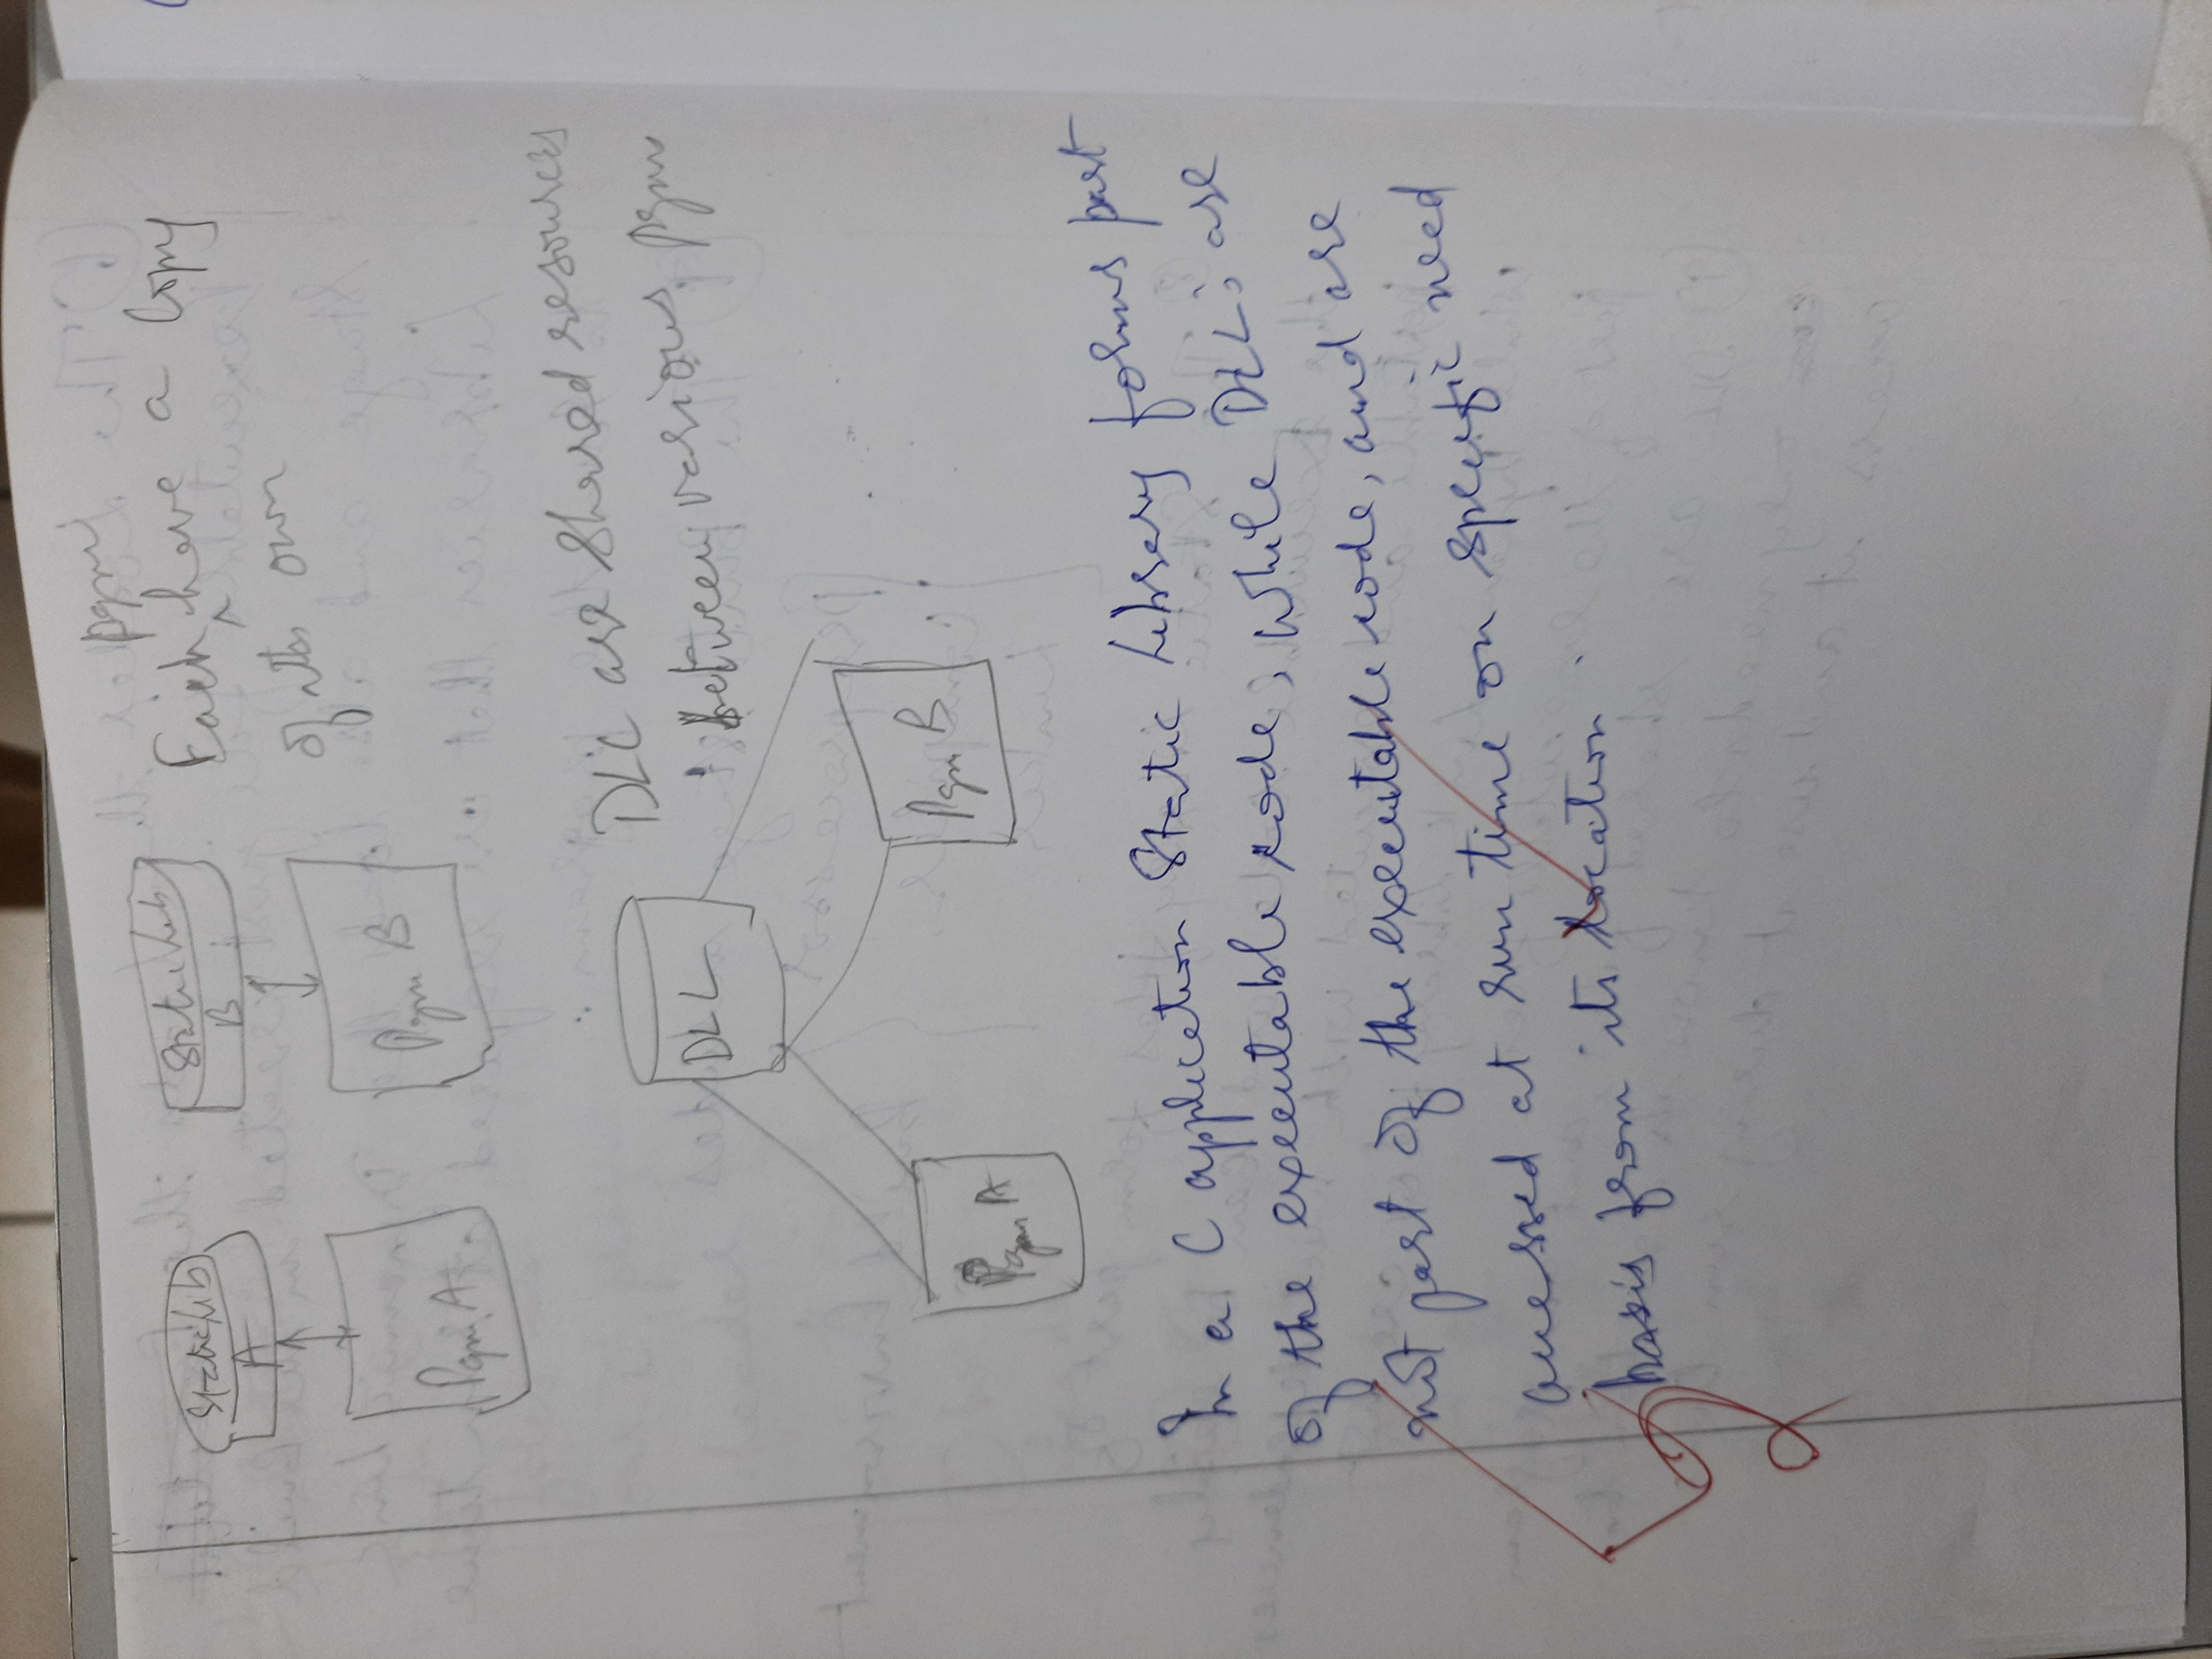 Static Lib
A
Static Lib
B
Pgm A
Pgm B
pgm
Each have a Copy
of its own
DLL
DLL are shared resources
between various pgm
Pgm A
Pgm B
In a C application Static Library forms part
of the executable code, while DLL's are
not part of the executable code, and are
accessed at run time on specific need
basis from its location.